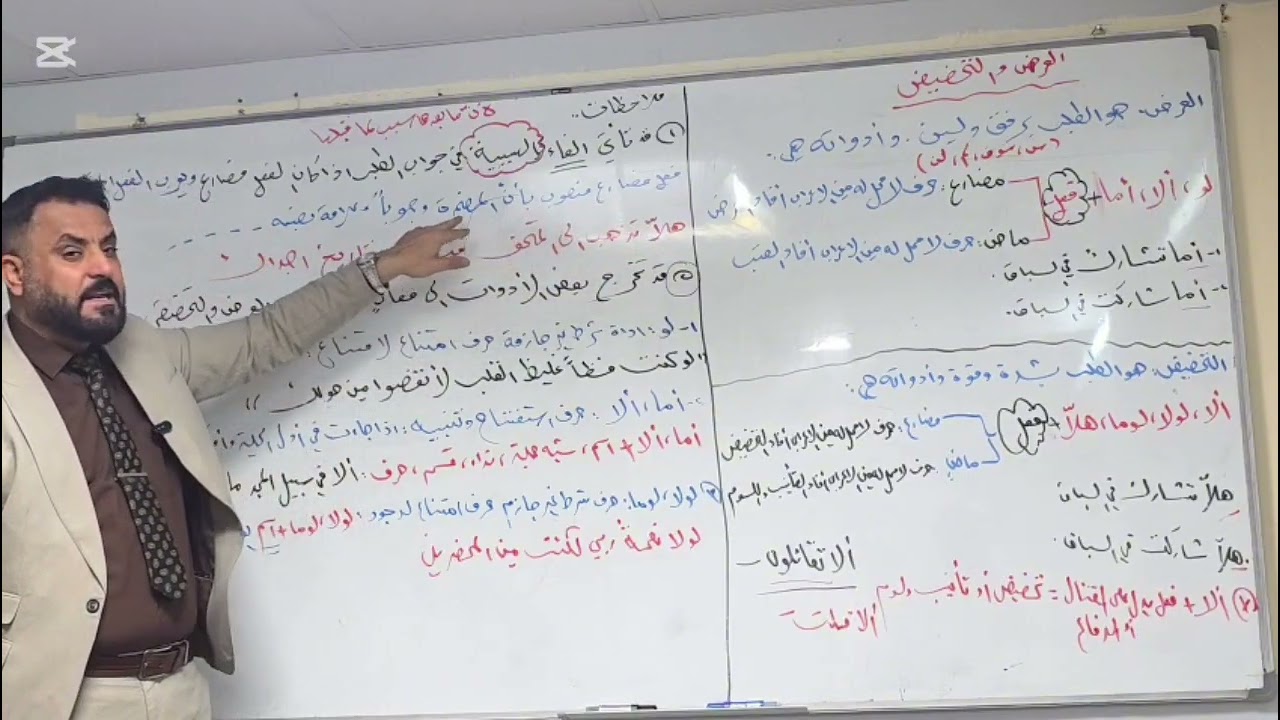 العرض والتحضيض
العرض: هو الطلب برفق ولين. وأدواته هي:
(س، سوف، لم، لن)
لو، ألا، أما + فعل
مضارع: حرف لا محل له من الإعراب أفاد العرض
ماضٍ: حرف لا محل له من الإعراب أفاد العتب
١- أما تشارك في السباق.
٢- أما شاركت في السباق.
التحضيض: هو الطلب بشدة وقوة وأدواته هي:
ألا، لولا، لوما، هلّا + فعل
مضارع: حرف لا محل له من الإعراب أفاد التحضيض
ماضٍ: حرف لا محل له من الإعراب أفاد التأنيب واللوم
هلّا تشارك في السباق
هلّا شاركت في السباق.
ألا تقاتلون
ألا + فعل يدل على القتال = تحضيض أو تأنيب ولوم
أو الدفاع
ألا قاتلت
ملاحظات:
لأن ما بعدها سبب لما قبلها
① قد تأتي الفاء السببية في جواب الطلب إذا كان الفعل مضارع ويعرب الفعل
فعل مضارع منصوب بأن المضمرة وجوباً وعلامة نصبه
هلّا تذهب إلى المتحف تاريخ أجدادك
② قد تخرج بعض الأدوات إلى العرض والتحضيض
١- لو: أداة شرط غير جازمة حرف امتناع لامتناع:
لو كنت فظاً غليظ القلب لانفضوا من حولك"
٢- أما، ألا: حرف استفتاح وتنبيه: إذا جاءت في أول الجملة
أما، ألا + اسم، شبه جملة، نداء، قسم، حرف: ألا في سبيل المجد ما
٣ لولا، لوما: حرف شرط غير جازم حرف امتناع لوجود: لولا، لوما + اسم
لولا نعمةُ ربي لكنت من المحضرين